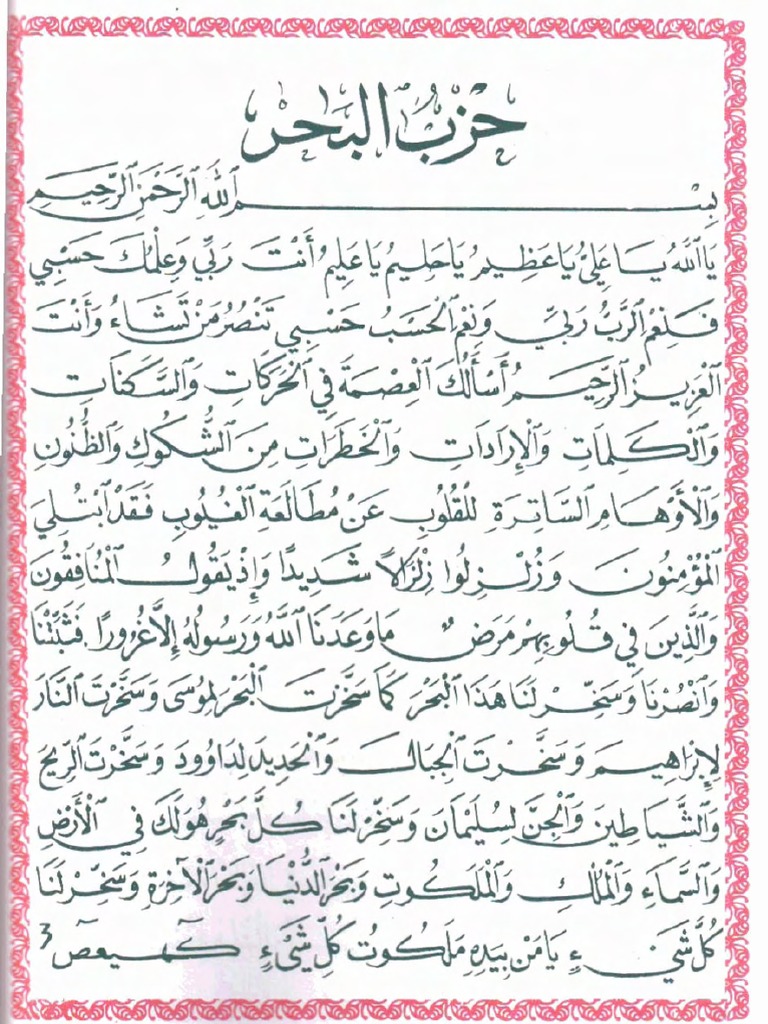 حِزْبُ الْبَحْرِ
بِسْمِ اللَّهِ الرَّحْمَنِ الرَّحِيمِ
يَا اَللَّهُ يَا عَلِيُّ يَا عَظِيمُ يَا حَلِيمُ يَا عَلِيمُ أَنْتَ رَبِّي وَعِلْمُكَ حَسْبِي
فَنِعْمَ الرَّبُّ رَبِّي وَنِعْمَ الْحَسْبُ حَسْبِي تَنْصُرُ مَنْ تَشَاءُ وَأَنْتَ
الْعَزِيزُ الرَّحِيمُ أَسْأَلُكَ الْعِصْمَةَ فِي الْحَرَكَاتِ وَالسَّكَنَاتِ
وَالْكَلِمَاتِ وَالْإِرَادَاتِ وَالْخَطَرَاتِ مِنَ الشُّكُوكِ وَالظُّنُونِ
وَالْأَوْهَامِ السَّاتِرَةِ لِلْقُلُوبِ عَنْ مُطَالَعَةِ الْغُيُوبِ فَقَدْ ابْتُلِيَ
الْمُؤْمِنُونَ وَزُلْزِلُوا زِلْزَالاً شَدِيدًا وَإِذْ يَقُولُ الْمُنَافِقُونَ
وَالَّذِينَ فِي قُلُوبِهِمْ مَرَضٌ مَا وَعَدَنَا اللَّهُ وَرَسُولُهُ إِلاَّ غُرُورًا. فَثَبِّتْنَا
وَانْصُرْنَا وَسَخِّرْ لَنَا هَذَا الْبَحْرَ كَمَا سَخَّرْتَ الْبَحْرَ لِمُوسَى وَسَخَّرْتَ النَّارَ
لِإِبْرَاهِيمَ وَسَخَّرْتَ الْجِبَالَ وَالْحَدِيدَ لِدَاوُودَ وَسَخَّرْتَ الرِّيحَ
وَالشَّيَاطِينَ وَالْجِنَّ لِسُلَيْمَانَ وَسَخِّرْ لَنَا كُلَّ بَحْرٍ هُوَ لَكَ فِي الْأَرْضِ
وَالسَّمَاءِ وَالْمُلْكِ وَالْمَلَكُوتِ وَبَحْرَ الدُّنْيَا وَبَحْرَ الْآخِرَةِ وَسَخِّرْ لَنَا
كُلَّ شَيْءٍ يَا مَنْ بِيَدِهِ مَلَكُوتُ كُلِّ شَيْءٍ كٓهيعٓصٓ 3